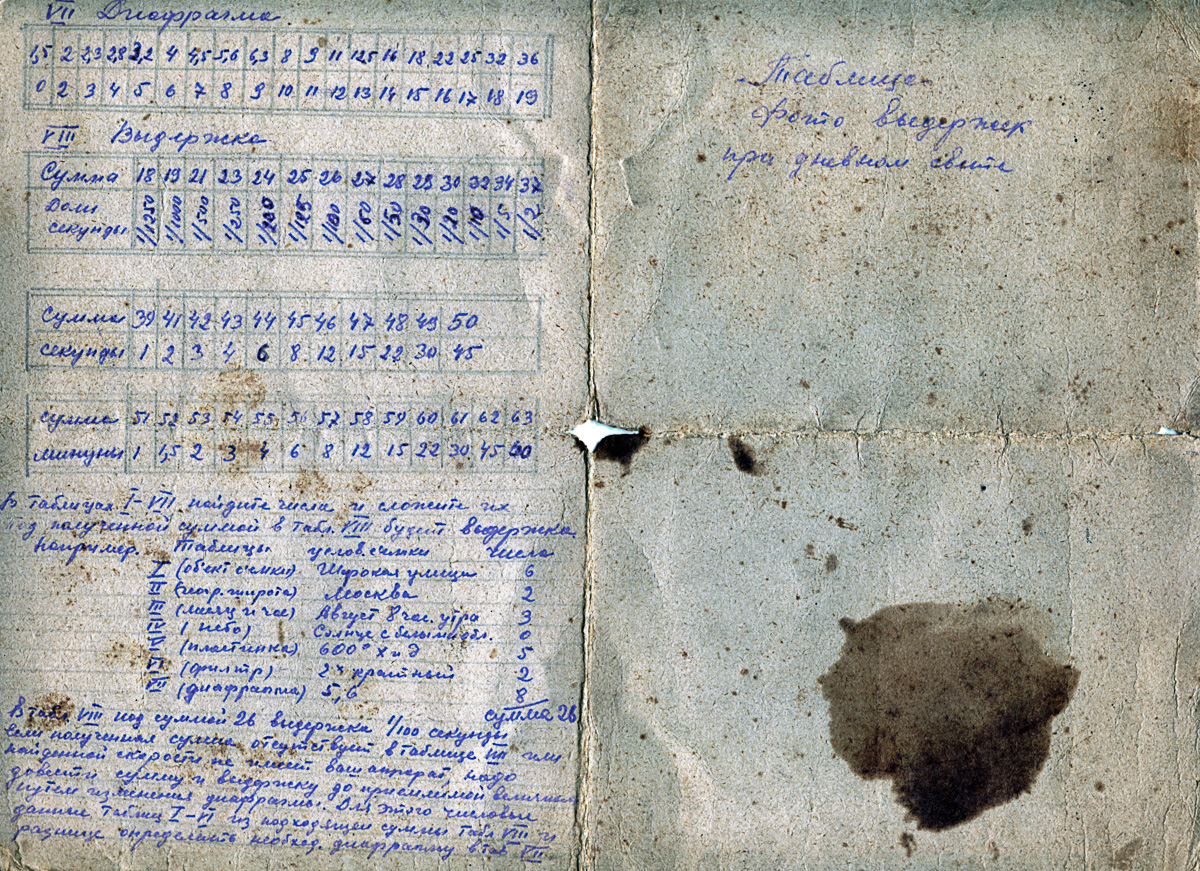 VII Диафрагма
1,5 2 2,3 2,8 3,2 4 4,5 5,6 6,3 8 9 11 12,5 16 18 22 25 32 36
0 2 3 4 5 6 7 8 9 10 11 12 13 14 15 16 17 18 19
VIII Выдержка
Сумма 18 19 21 23 24 25 26 27 28 29 30 32 34 37
Доли секунды 1/1250 1/1000 1/500 1/250 1/200 1/125 1/100 1/60 1/50 1/30 1/20 1/10 1/5 1/2
Сумма 39 41 42 43 44 45 46 47 48 49 50
секунды 1 2 3 4 6 8 12 15 22 30 45
сумма 51 52 53 54 55 56 57 58 59 60 61 62 63
минуты 1 1,5 2 3 4 6 8 12 15 22 30 45
В таблицах I-VII найдите числа и сложите их
под полученной суммой в табл. VIII будет выдержка
Например. Таблицы услов. съемки числа
I (объект съемки) Широкая улица 6
II (геогр. широта) Москва 2
III (месяц и час) Август 8 час. утра 3
IV (небо) Солнце с белыми обл. 0
V (пластинка) 600° Х и Д 5
VI (фильтр) 2х кратный 2
VII (диафрагма) 5,6 8
сумма 26
В табл VIII под суммой 26 выдержка 1/100 секунды
Если полученная сумма отсутствует в таблице VIII или
найденной скорости не имеет ваш аппарат, надо
довести сумму и выдержку до приемлимой величины
путем изменения диафрагмы. Для этого числовые
данные таблиц I-VI из подходящей суммы табл VIII и
разнице определить необход. диафрагму в таб VII
Таблица
Фото выдержек
при дневном свете